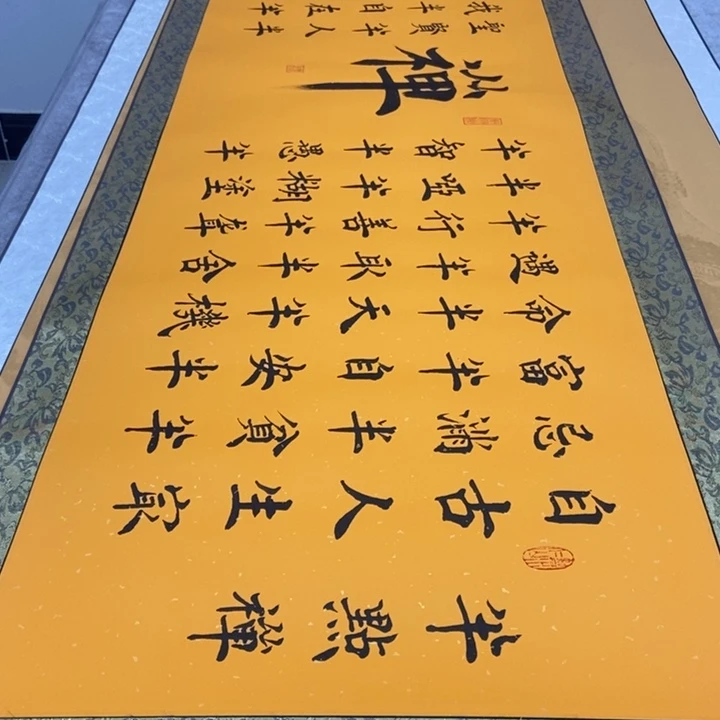 半點禪
自古人生最
忌滿半貧半
富半自安半
命半天半機
遇半取半舍
半行善半聾
半啞半糊塗
半智半愚半
禪
聖賢半人半
我半自在半